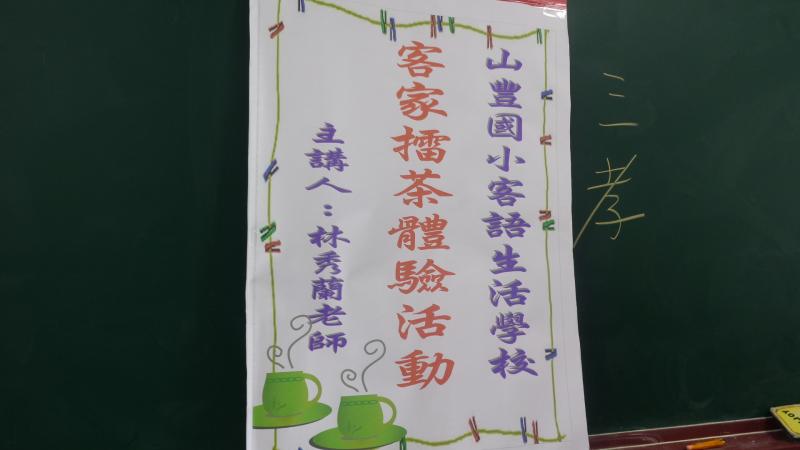 山豐國小客語生活學校
客家擂茶體驗活動
主講人：林秀蘭老師
三孝
JOY